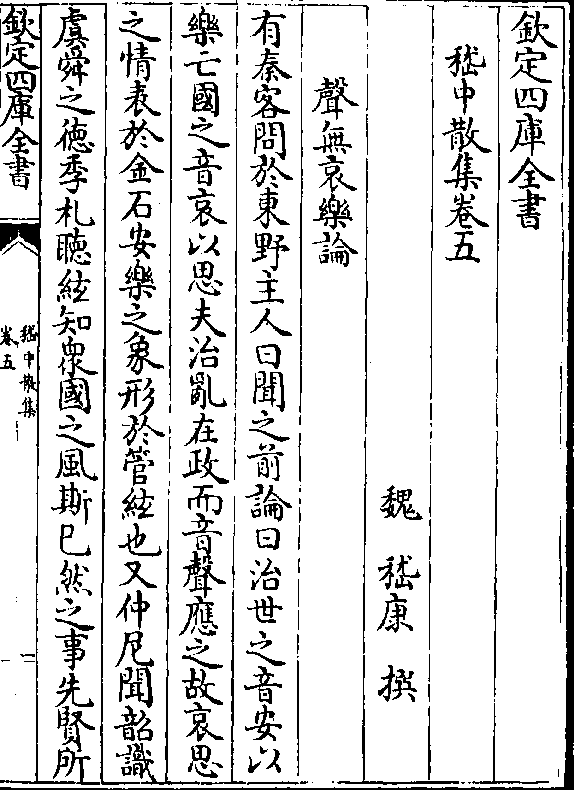 欽定四庫全書
嵇中散集卷五
魏 嵇康 撰
聲無哀樂論
有秦客問於東野主人曰聞之前論曰治世之音安以
樂亡國之音哀以思夫治亂在政而音聲應之故哀思
之情表於金石安樂之象形於管絃也又仲尼聞韶識
虞舜之德季札聽絃知衆國之風斯已然之事先賢所
欽定四庫全書
嵇中散集
卷五
一